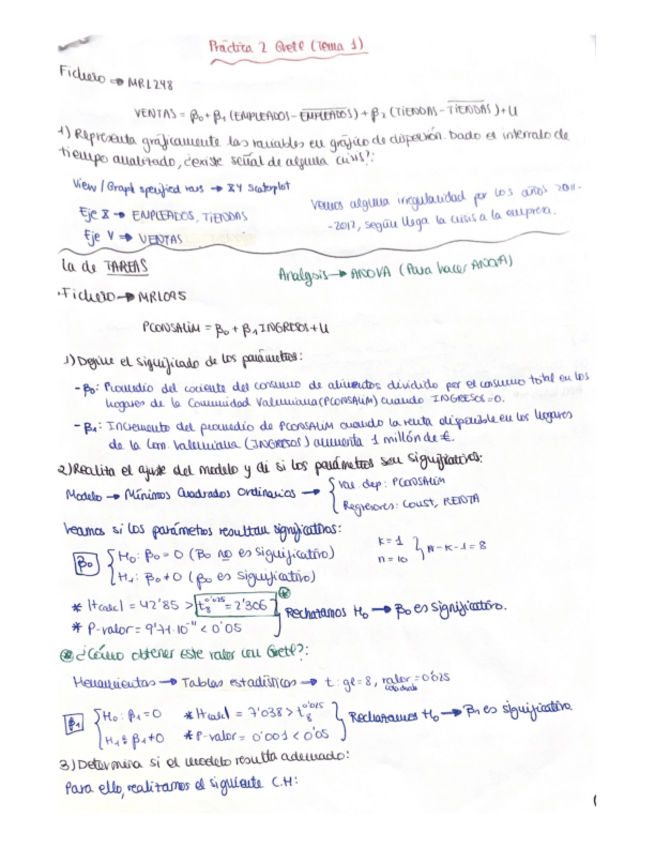 Práctica 2 Gretl (Tema 1)
Fichero → MRL248
VENTAS = β₀ + β₁ (EMPLEADOS - EMPLEADOS) + β₂ (TIENDAS - TIENDAS) + U
1) Representa gráficamente las variables en gráfico de dispersión. Dado el intervalo de
tiempo analizado, ¿existe señal de alguna crisis?:
View / Graph specified vars → XY Scatterplot
Eje X → EMPLEADOS, TIENDAS
Eje Y → VENTAS
Vemos alguna irregularidad por los años 2011-
-2012, según llega la crisis a la empresa.
La de TAREAS
Analysis → ANOVA (Para hacer ANOVA)
·Fichero → MRL095
PCONSALIM = β₀ + β₁ INGRESOS + U
1) Define el significado de los parámetros:
- β₀: Promedio del cociente del consumo de alimentos dividido por el consumo total en los
hogares de la Comunidad Valenciana (PCONSALIM) cuando INGRESOS=0.
- β₁: Incremento del promedio de PCONSALIM cuando la renta disponible en los hogares
de la Com. Valenciana (INGRESOS) aumenta 1 millón de €.
2) Realiza el ajuste del modelo y di si los parámetros son significativos:
Modelo → Mínimos Cuadrados Ordinarios → { Var. dep: PCONSALIM
Regresores: Const, RENTA
Veamos si los parámetros resultan significativos:
β₀ { H₀: β₀ = 0 (β₀ no es significativo)
H₁: β₀ ≠ 0 (β₀ es significativo)
K = 1
n = 10 } n-k-1 = 8
* |tcalc| = 42'85 > t₈^0'025 = 2'306
* P-valor = 9'71·10⁻¹¹ < 0'05
} Rechazamos H₀ → β₀ es significativo.
⊛ ¿Cómo obtener este valor con Gretl?:
Herramientas → Tablas estadísticas → t: gl = 8, valor = 0'025
β₁ { H₀: β₁ = 0 * |tcalc| = 7'038 > t₈^0'025
H₁: β₁ ≠ 0 * P-valor = 0'001 < 0'05
} Rechazamos H₀ → β₁ es significativo
3) Determina si el modelo resulta adecuado:
Para ello, realizamos el siguiente C.H: